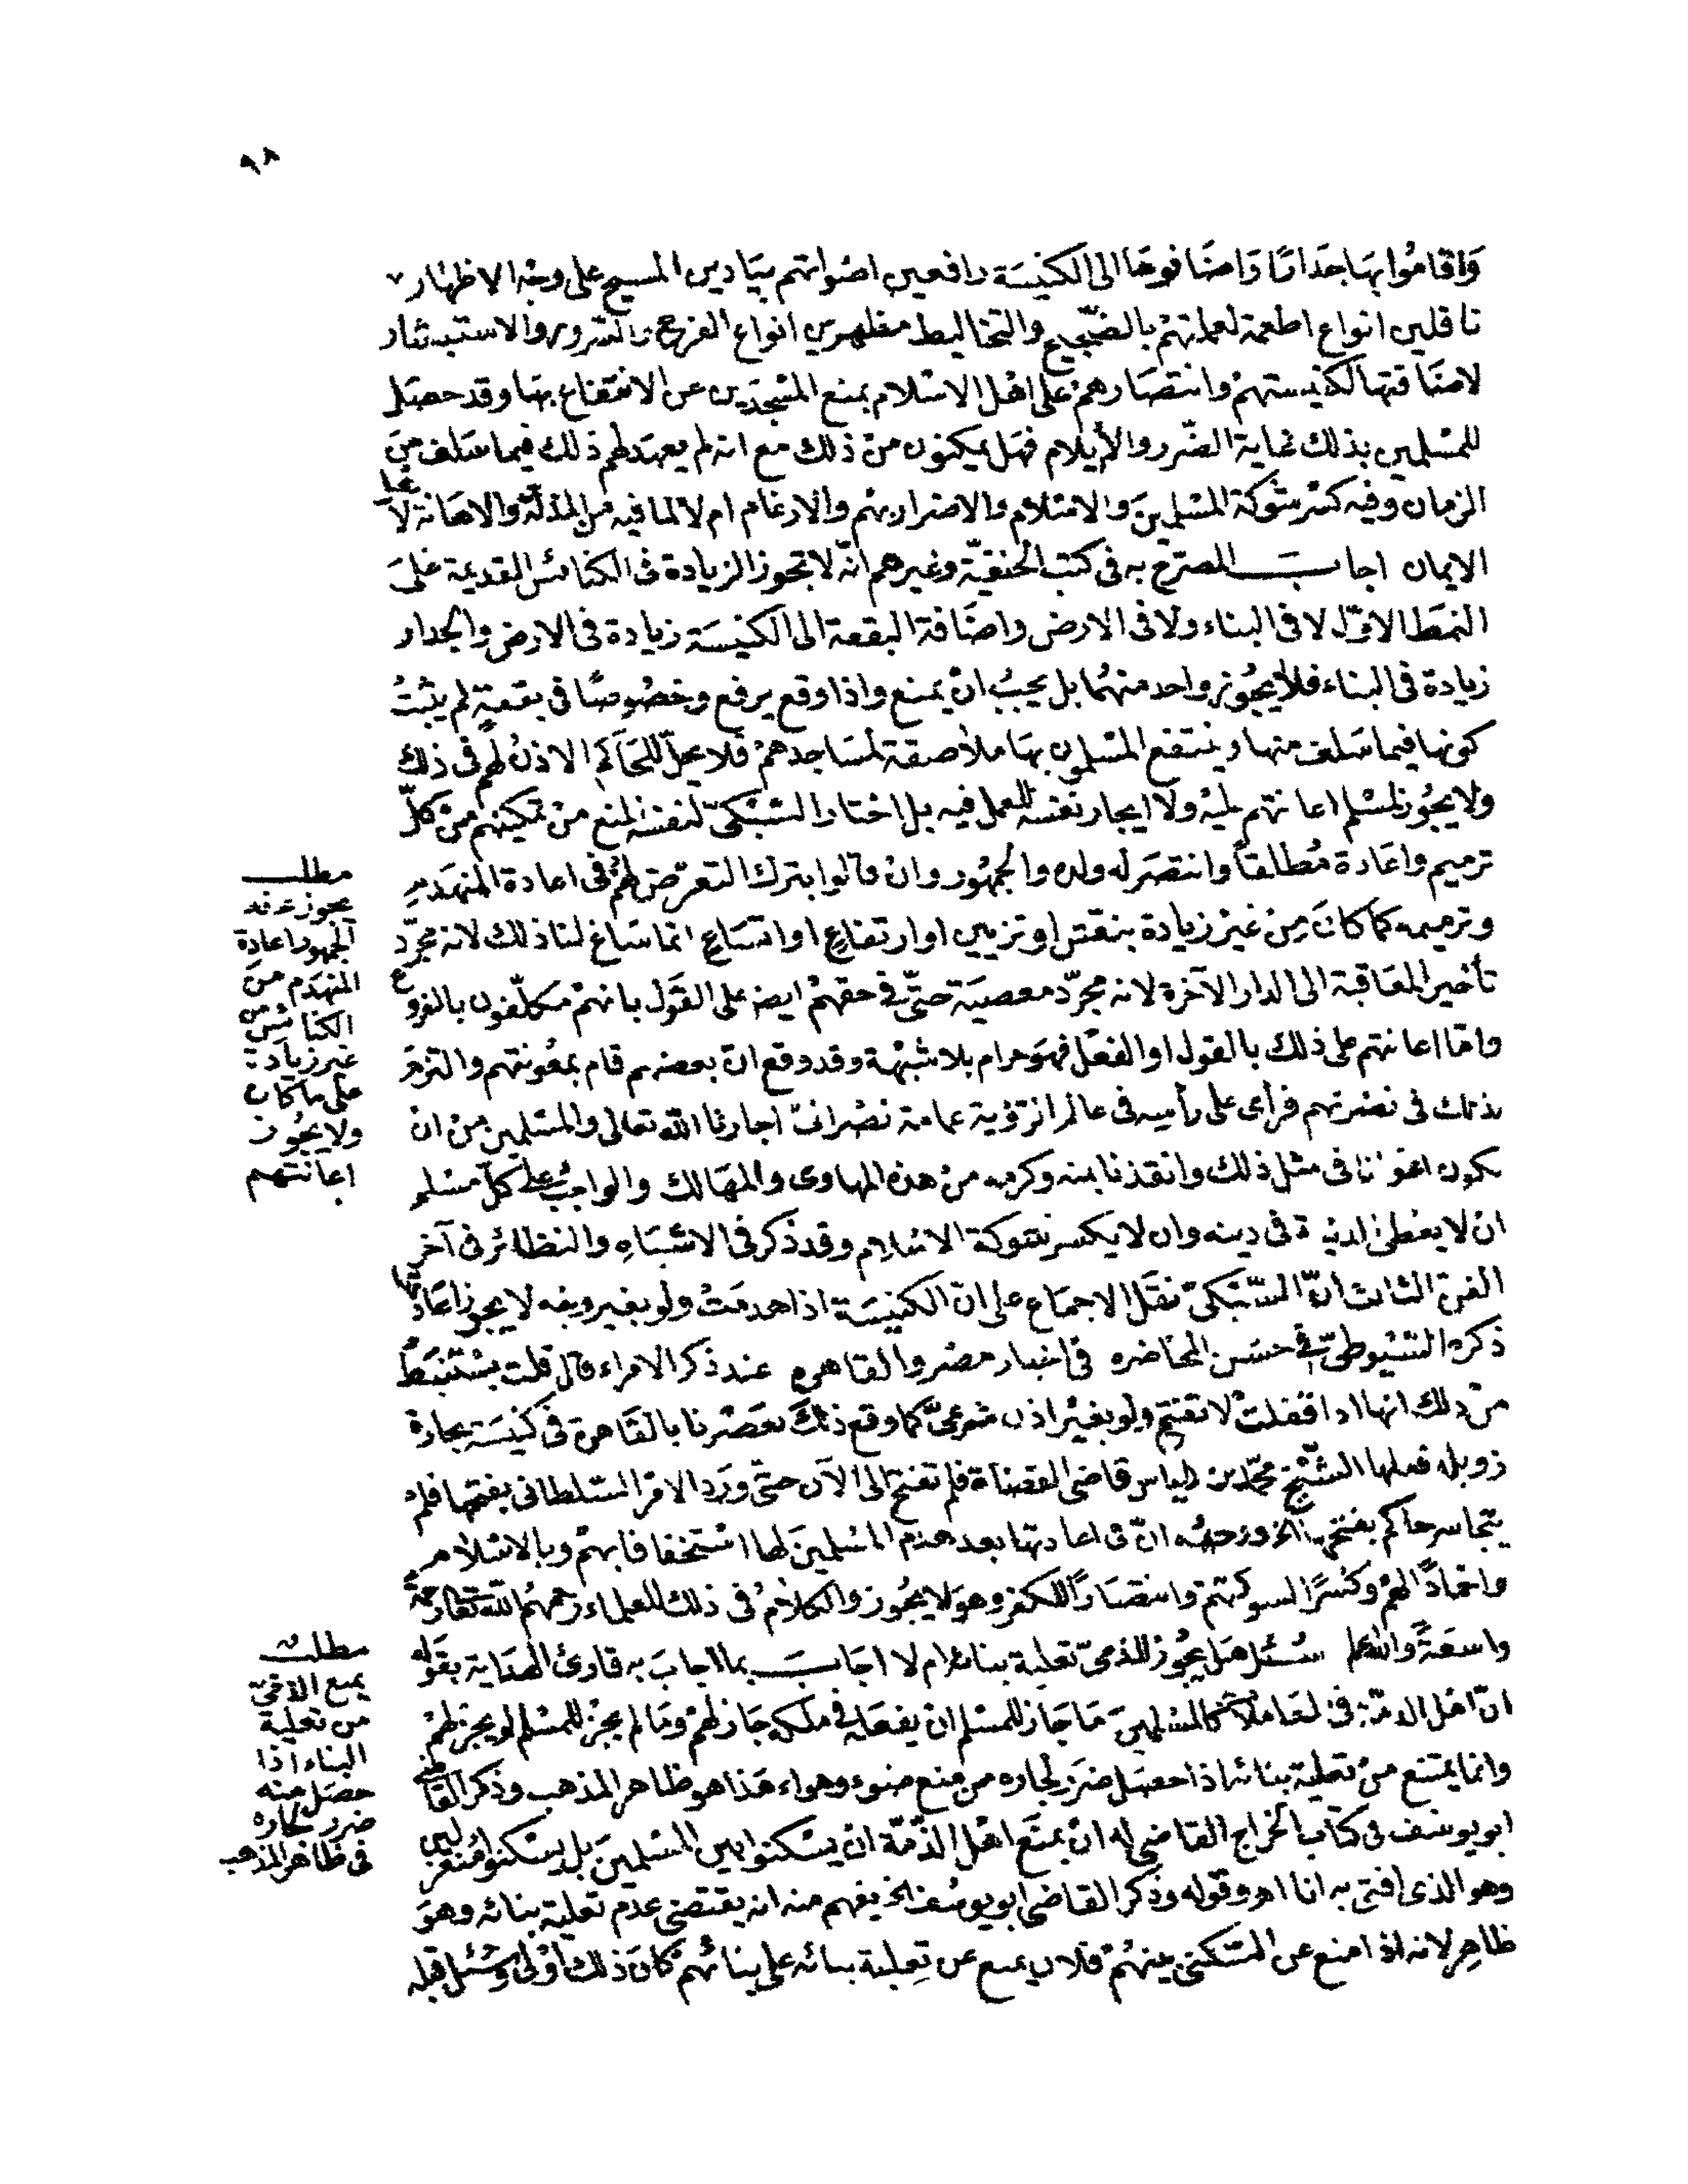 ٩٨
واقاموا بها جدارا واضافوها الى الكنيسة رافعين اصواتهم بيا دين المسيح على وجه الاظهار
ناقلين انواع اطعمة لعملتهم بالضجيج والتخاليط مظهرين انواع الفرح والسرور والاستبشار
لاضافتها لكنيستهم وانتصارهم على اهل الاسلام بمنع المسجدين عن الانتفاع بها وقد حصل
للمسلمين بذلك غاية الضرر والايلام فهل يمكنون من ذلك مع انه لم يعهد لهم ذلك فيما سلف من
الزمان وفيه كسر شوكة المسلمين والاسلام والاضرار بهم والارغام ام لا لما فيه من المذلة والاهانة لا
الايمان اجاب المصرح به في كتب الحنفية وغيرهم انه لا تجوز الزيادة في الكنائس القديمة على
النمط الاول لا في البناء ولا في الارض واضافة البقعة الى الكنيسة زيادة في الارض والجدار
زيادة في البناء فلا يجوز واحد منهما بل يجب ان يمنع واذا وقع يرفع وخصوصا في بقعة لم يثبت
كونها فيما سلف منها وينتفع المسلمون بها ملاصقة لمساجدهم فلا يحل للحاكم الاذن لهم في ذلك
ولا يجوز لمسلم اعانتهم عليه ولا ايجار نفسه للعمل فيه بل اختار السبكي لنفسه المنع من تمكينهم من كل
ترميم واعادة مطلقا وانتصر له ولده والجمهور وان قالوا بترك التعرض لهم في اعادة المنهدم
وترميمه كما كان من غير زيادة بنقش او تزيين او ارتفاع او اتساع انما ساغ لنا ذلك لانه مجرد
تأخير المعاقبة الى الدار الآخرة لانه مجرد معصية حتى في حقهم ايضا على القول بانهم مكلفون بالفروع
واما اعانتهم على ذلك بالقول او الفعل فهو حرام بلا شبهة وقد وقع ان بعضهم قام بمعونتهم والتزم
بذلك في نصرتهم فرأى على رأسه في عالم الرؤية عمامة نصراني اجارنا الله تعالى والمسلمين من ان
نكون اعوانا في مثل ذلك وانقذنا بمنه وكرمه من هذه المهاوى والمهالك والواجب على كل مسلم
ان لا يعطى الدنية في دينه وان لا يكسر شوكة الاسلام وقد ذكر في الاشباه والنظائر في آخر
الفن الثالث ان السبكي نقل الاجماع على ان الكنيسة اذا هدمت ولو بغير وجه لا يجوز اعادتها
ذكره السيوطي في حسن المحاضره في اخبار مصر والقاهره عند ذكر الامراء قال قلت يستنبط
من ذلك انها اذا قفلت لا تفتح ولو بغير اذن شرعي كما وقع ذلك بعصرنا بالقاهرة في كنيسة بحارة
زويله قفلها الشيخ محمد بن الياس قاضي القضاة فلم تفتح الى الآن حتى ورد الامر السلطاني بفتحها فلم
يتجاسر حاكم بفتحها الخ ووجهه ان في اعادتها بعد هدم المسلمين لها استخفافا بهم وبالاسلام
واخمادا لهم وكسرا لشوكتهم وانتصارا للكفر وهو لا يجوز والكلام في ذلك للعلماء رحمهم الله تعالى رحمة
واسعة والله اعلم سئل هل يجوز للذمي تعلية بنائه ام لا اجاب بما اجاب به قارئ الهداية بقوله
ان اهل الذمة في المعاملات كالمسلمين ما جاز للمسلم ان يفعله في ملكه جاز لهم وما لم يجز للمسلم لم يجز لهم
وانما يمتنع من تعلية بنائه اذا حصل ضرر لجاره من منع ضوء وهواء هذا هو ظاهر المذهب وذكر القاضى
ابو يوسف في كتاب الخراج القاضي له ان يمنع اهل الذمة ان يسكنوا بين المسلمين بل يسكنوا منعزلين
وهو الذي افتى به انا اهـ وقوله وذكر القاضي ابو يوسف الخ يفهم منه انه يقتضى عدم تعلية بنائه وهو
ظاهر لانه اذا منع عن السكنى بينهم فلان يمنع عن تعلية بنائه على بنائهم كان ذلك اولى وسئل قبله
مطلب
يجوز عند
الجمهور اعادة
المنهدم من
الكنائس من
غير زيادة
على ما كان
ولا يجوز
اعانتهم
مطلب
يمنع الذمي
من تعلية
البناء اذا
حصل منه
ضرر لجاره
في ظاهر المذهب